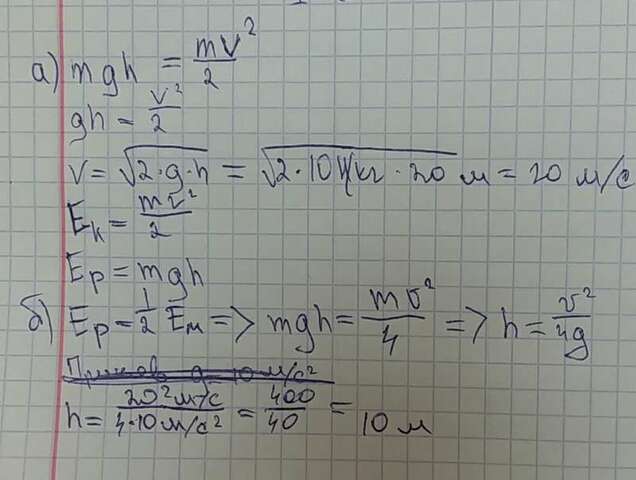 а) mgh = mv²/2
gh = v²/2
v = √2·g·h = √2·10Н/кг·20 м = 20 м/с
Eк = mv²/2
Ep = mgh
б) Ep = 1/2 Eм => mgh = mv²/4 => h = v²/4g
g 10 м/с²
h = 20²м/с/4·10м/с² = 400/40 = 10 м